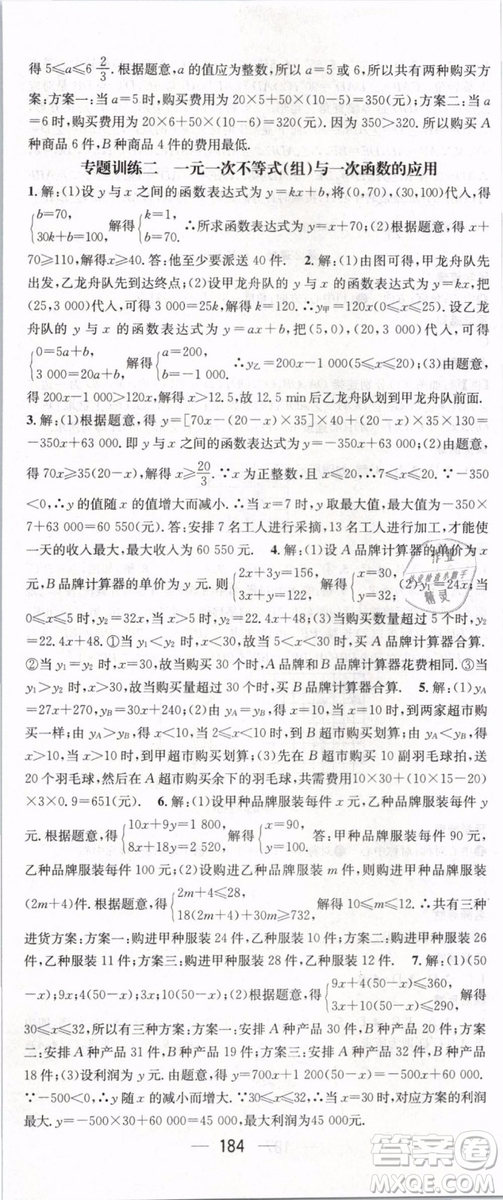 得 5≤a≤6 2/3. 根据题意,a 的值应为整数,所以 a=5 或 6,所以共有两种购买方
案:方案一:当 a=5 时,购买费用为 20×5+50×(10-5)=350(元);方案二:当 a
=6 时,购买费用为 20×6+50×(10-6)=320(元). 因为 350>320. 所以购买 A
种商品 6 件,B 种商品 4 件的费用最低.
专题训练二 一元一次不等式(组)与一次函数的应用
1. 解:(1)设 y 与 x 之间的函数表达式为 y=kx+b,将(0,70),(30,100)代入,得
{b=70, 30k+b=100, 解得{k=1, b=70. ∴所求函数表达式为 y=x+70;(2)根据题意,得 x+
70≥110,解得 x≥40. 答:他至少要派送 40 件. 2. 解:(1)由图可得,甲龙舟队先
出发,乙龙舟队先到达终点;(2)设甲龙舟队的 y 与 x 的函数表达式为 y=kx,把
(25,3 000)代入,可得 3 000=25k,解得 k=120. ∴y甲=120x(0≤x≤25). 设乙龙
舟队的 y 与 x 的函数表达式为 y=ax+b,把(5,0),(20,3 000)代入,可得
{0=5a+b, 3 000=20a+b, 解得{a=200, b=-1 000. ∴y乙=200x-1 000(5≤x≤20);(3)由题意,
得 200x-1 000>120x,解得 x>12.5,故 12.5 min后乙龙舟队划行到甲龙舟队前面.
3. 解:(1)根据题意,得 y=[70x-(20-x)×35]×40+(20-x)×35×130=
-350x+63 000. 即 y 与 x 之间的函数表达式为 y=-350x+63 000;(2)由题意,
得 70x≥35(20-x),解得 x≥20/3. ∵x 为正整数,且 x≤20,∴7≤x≤20. ∵-350
<0,∴y 的值随 x 的值增大而减小. ∴当 x=7 时,y 取最大值,最大值为-350×
7+63 000=60 550(元). 答:安排 7 名工人进行采摘,13 名工人进行加工,才能使
一天的收入最大,最大收入为 60 550 元. 4. 解:(1)设 A 品牌计算器的单价为 x
元,B 品牌计算器的单价为 y 元,则{2x+3y=156, 3x+y=122. 解得{x=30, y=32; (2)y₁=24x;当
0≤x≤5 时,y₂=32x,当 x>5 时,y₂=22.4x+48;(3)当购买数量超过 5 个时,y₂
=22.4x+48. ①当 y₁<y₂时,x<30,故当购买数量少于 30 个时,A 品牌计算器合算.
②当 y₁=y₂时,x=30,故当购买 30 个时,A 品牌和 B 品牌计算器花费相同. ③当
y₁>y₂时,x>30,故当购买数量超过 30 个时,B 品牌计算器合算. 5. 解:(1)yA
=27x+270,yB=30x+240;(2)当 yA=yB 时,得 x=10. ∴当 x=10 时,到两家超市购
买一样划算;当 x>10 时,到 A 超市购买划算;当 2≤x<10 时,到 B 超市购买划
算;(3)由题意知 x=15,15>10,∴先选择 B 超市购买 10 副羽毛球拍,送
20 个羽毛球,然后在 A 超市购买余下的羽毛球,共需费用10×30+(10×15-20)
×3×0.9=651(元). 6. 解:(1)设甲种品牌服装每件 x 元,乙种品牌服装每件y
元,由题意,得{10x+9y=1 810, 8x+18y=2 520. 解得{x=90, y=100. 答:甲种品牌服装每件 90 元,
乙种品牌服装每件 100 元;(2)设购进乙种品牌服装 m 件,则购进甲种品牌服装
(2m+4)件. 根据题意,得{2m+4≤28, 18(2m+4)+30m≥732, 解得 10≤m≤12. ∴共有三种
进货方案:方案一:购进甲种服装 24 件,乙种服装 10 件;方案二:购进甲种服装 26 件,
乙种服装 11 件;方案三:购进甲种服装 28 件,乙种服装 12 件. 7. 解:(1)(50
-x);9x;4(50-x);3x;10(50-x);(2)根据题意,得{9x+4(50-x)≤360, 3x+10(50-x)≤290, 解得
30≤x≤32,所以有三种方案:方案一:安排 A 种产品 30 件,B 种产品20件;方案
二:安排 A 种产品 31 件,B 种产品 19 件;方案三:安排 A 种产品 32 件,B 种产品
18 件;(3)设利润为 y 元,则 y=700x+1 200(50-x)=-500x+60 000,
∵-500<0,∴y 的值随 x 的值增大而减小. 由题意可知,采取方案一的方式利润
最大. y=-500×30+60 000=45 000,最大利润为45 000元.
184